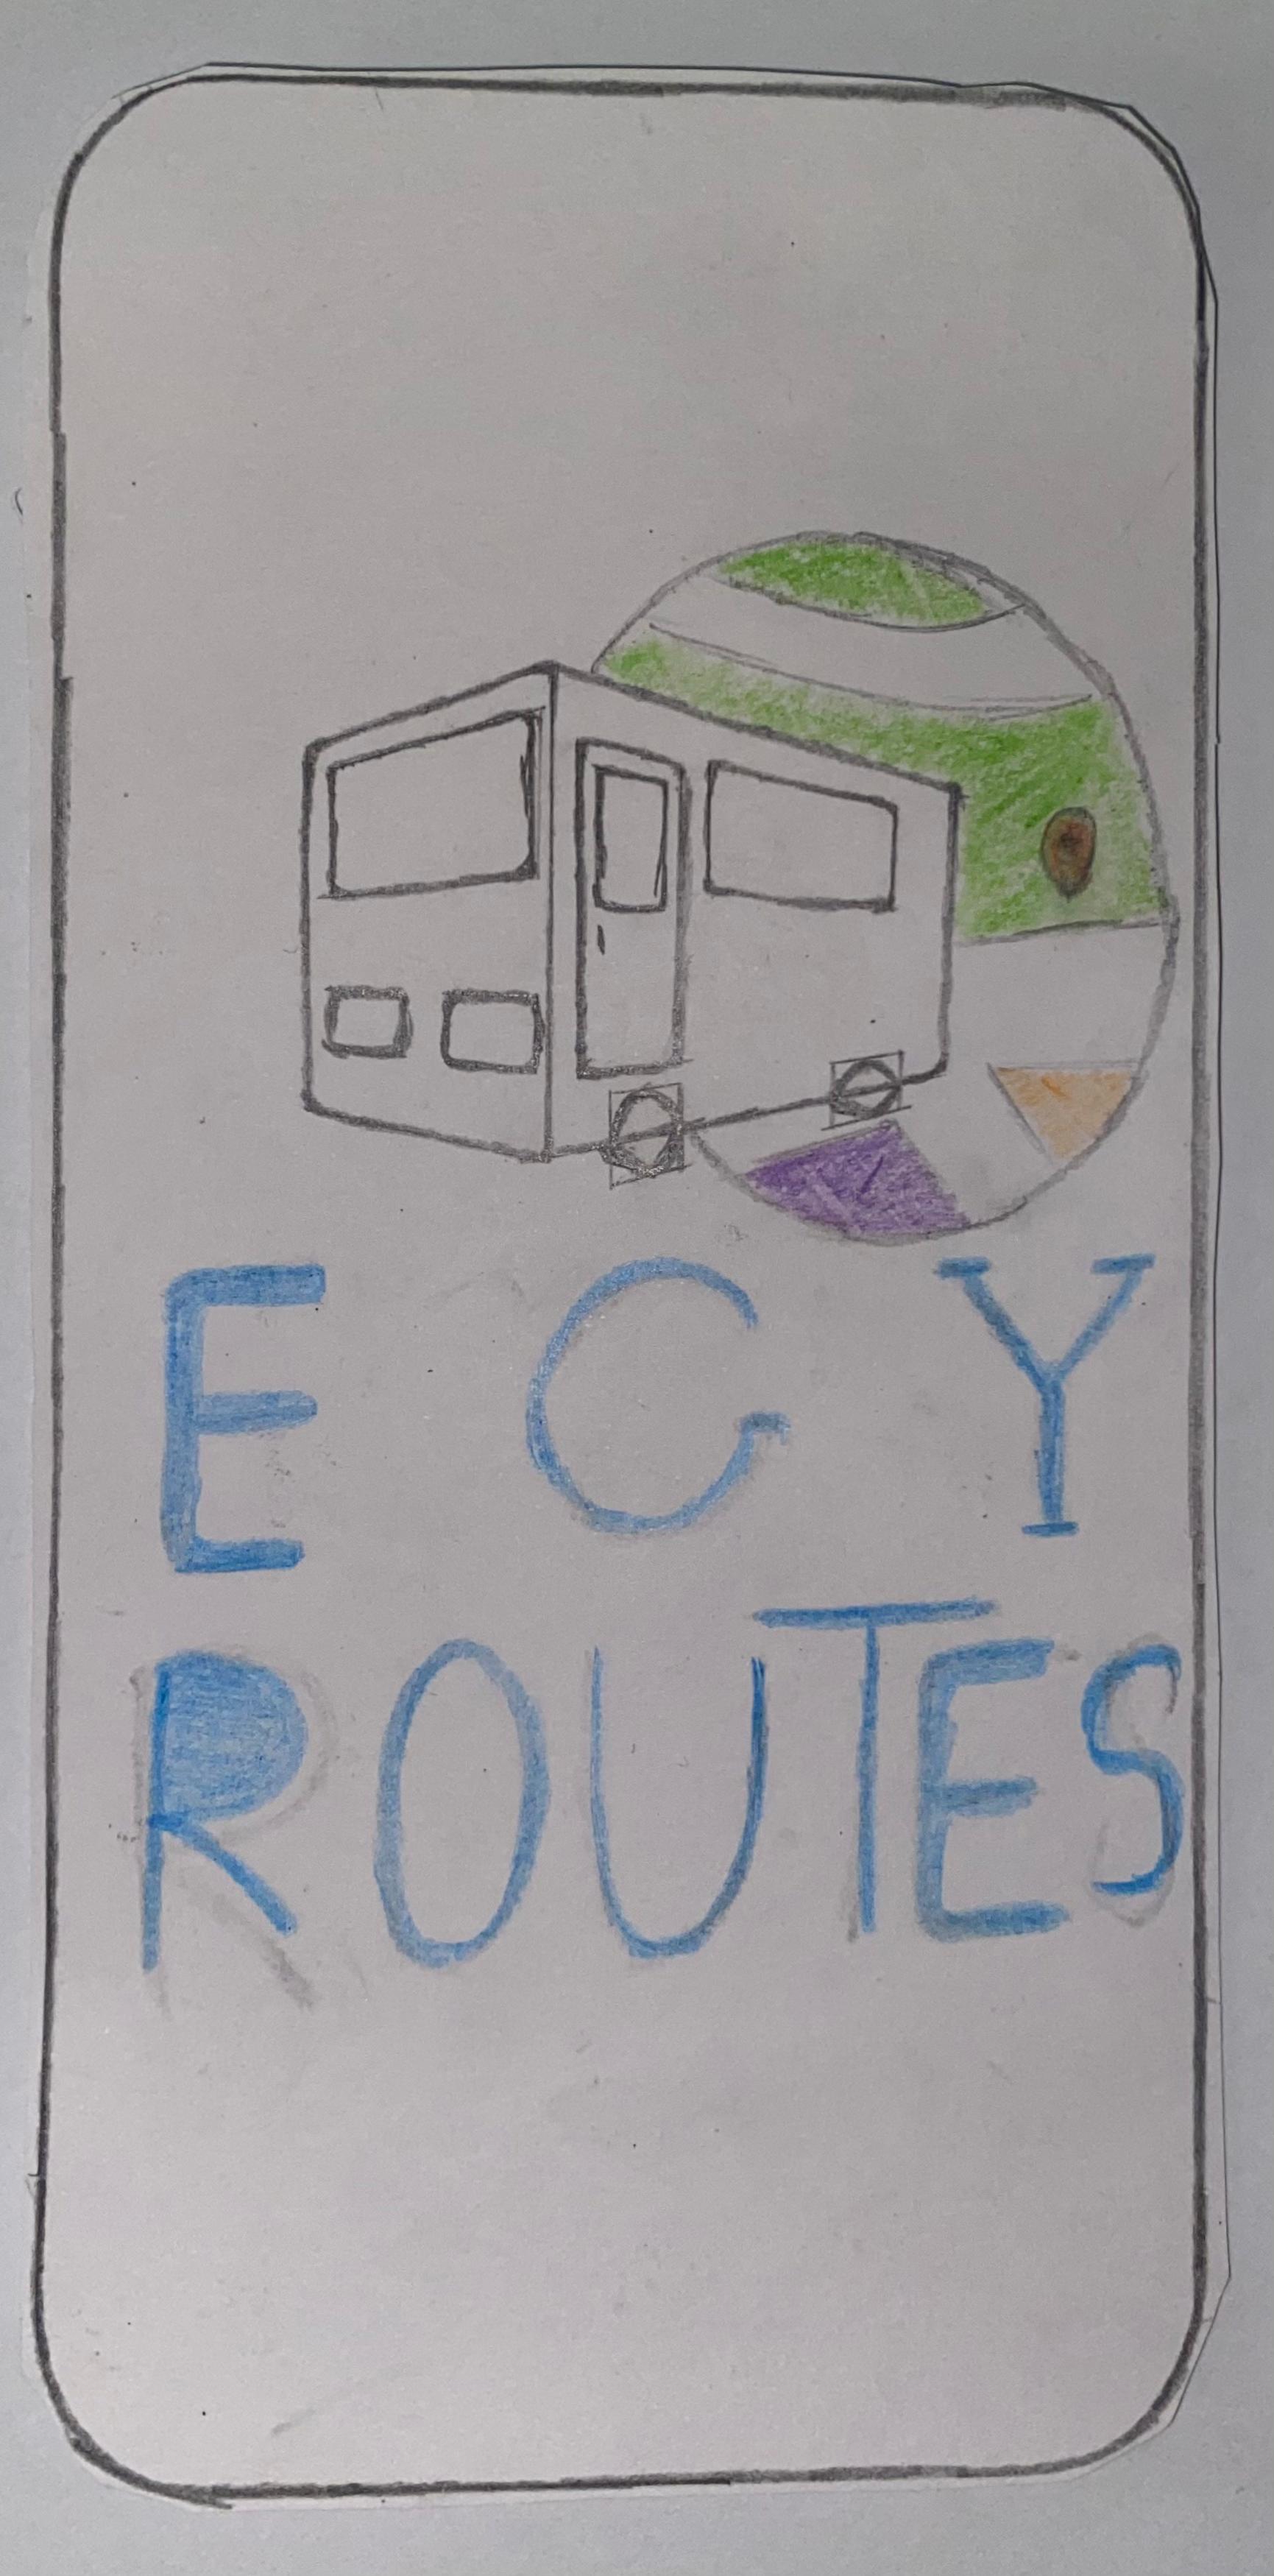 EGY
ROUTES